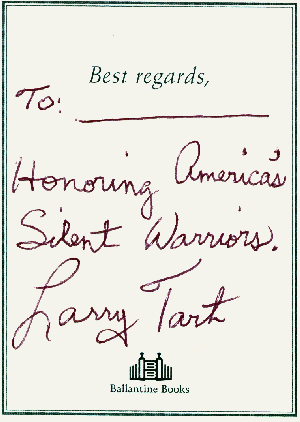 Best regards,
To:
Honoring America's
Silent Warriors.
Larry Tart
Ballantine Books